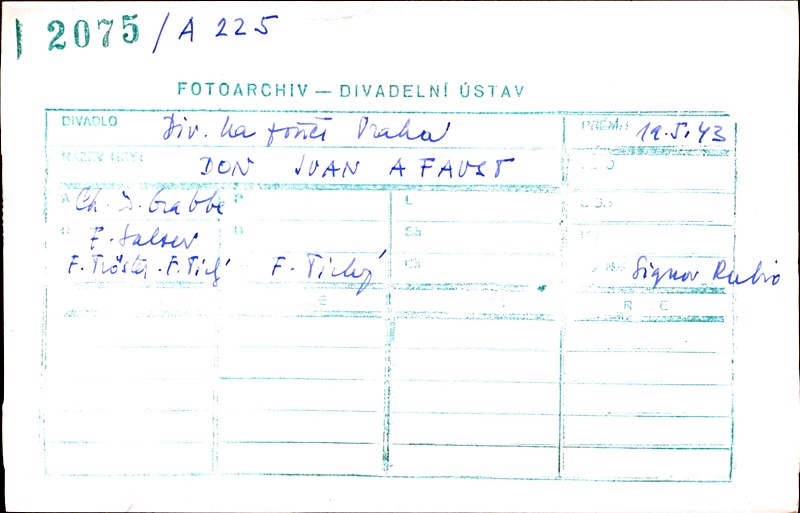 2075 / A 225
FOTOARCHIV — DIVADELNÍ ÚSTAV
DIVADLO Div. Na Praha PREM. 19.5.43
NÁZEV HRY: DON JUAN A FAUST
A Ch. D. Grabbe P L
F. Salzer Sb
F. Tröster - F. Tichý F. Tichý Signor Rubio
E R E